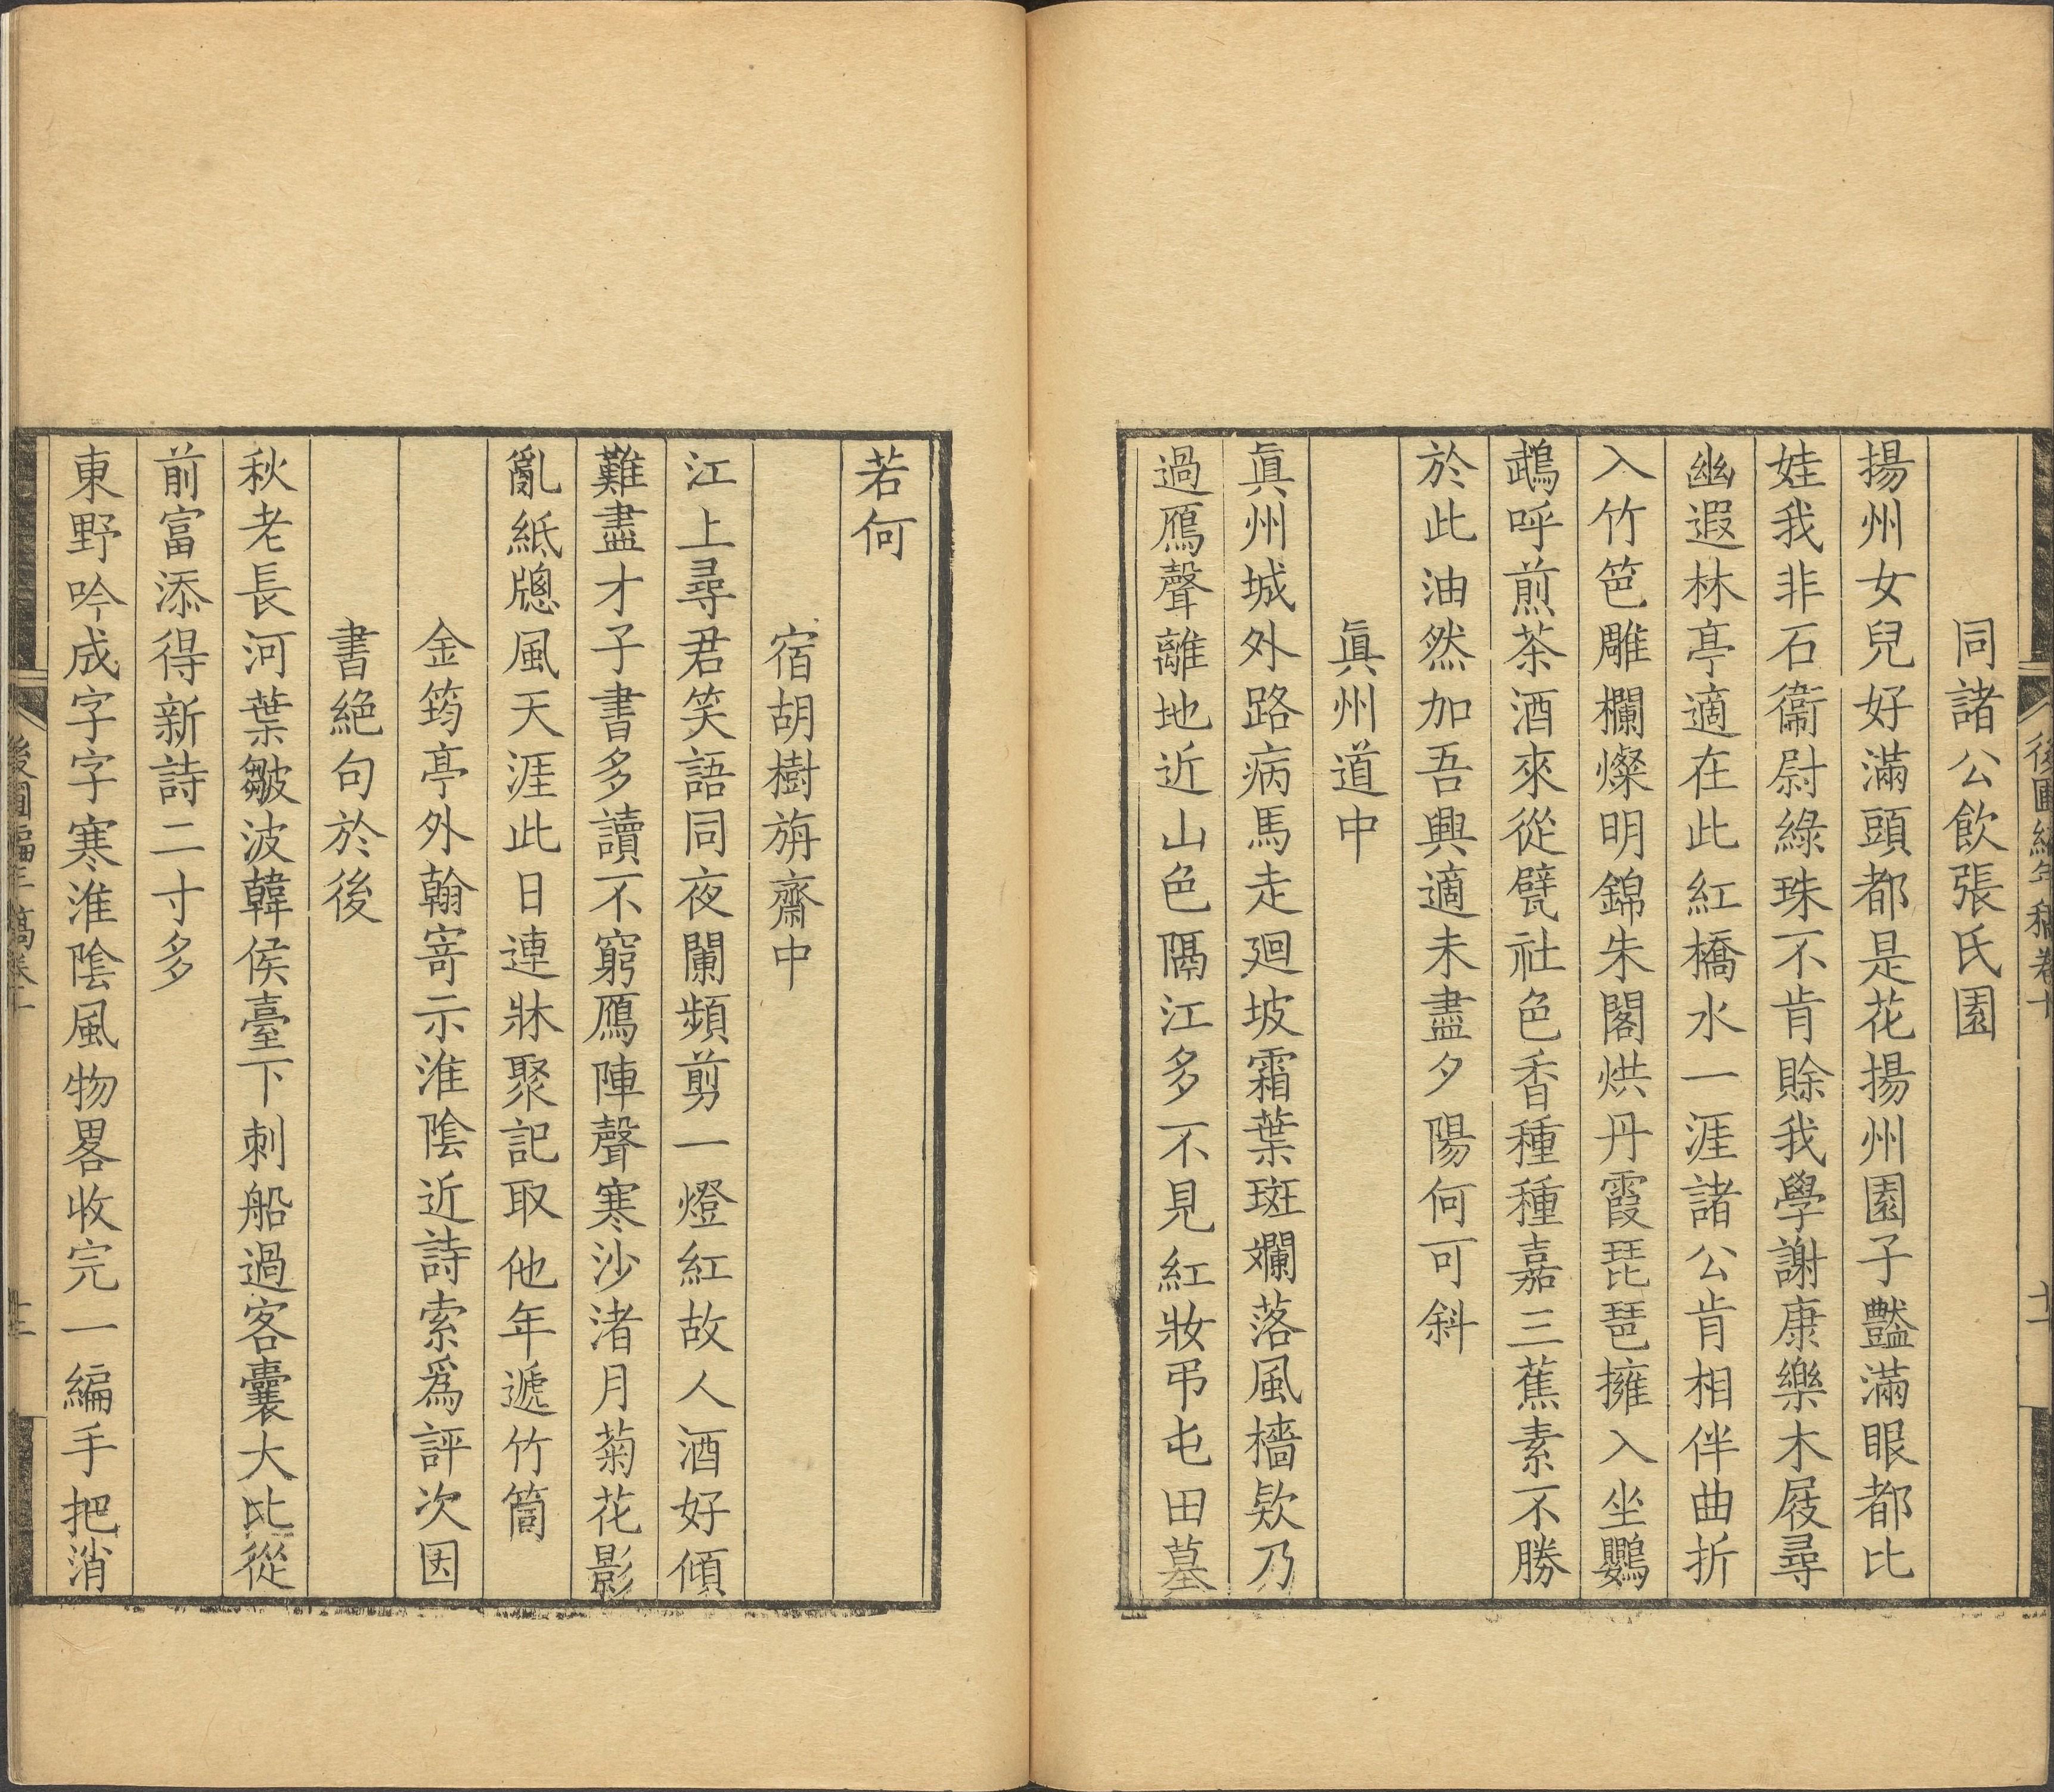 後圃編年稿卷十
十一
同諸公飲張氏園
揚州女兒好滿頭都是花揚州園子豔滿眼都比
娃我非石衞尉綠珠不肯賖我學謝康樂木屐尋
幽遐林亭適在此紅橋水一涯諸公肯相伴曲折
入竹笆雕欄燦明錦朱閣烘丹霞琵琶擁入坐鸚
鵡呼煎茶酒來從甓社色香種種嘉三蕉素不勝
於此油然加吾興適未盡夕陽何可斜
眞州道中
眞州城外路病馬走廻坡霜葉斑斕落風檣欵乃
過鴈聲離地近山色隔江多不見紅妝弔屯田墓
若何
宿胡樹旃齋中
江上尋君笑語同夜闌頻剪一燈紅故人酒好傾
難盡才子書多讀不窮鴈陣聲寒沙渚月菊花影
亂紙牕風天涯此日連牀聚記取他年遞竹筩
金筠亭外翰寄示淮陰近詩索爲評次因
書絕句於後
秋老長河葉皺波韓侯臺下刺船過客囊大比從
前富添得新詩二寸多
東野吟成字字寒淮陰風物畧收完一編手把消
後圃編年稿卷十
十二